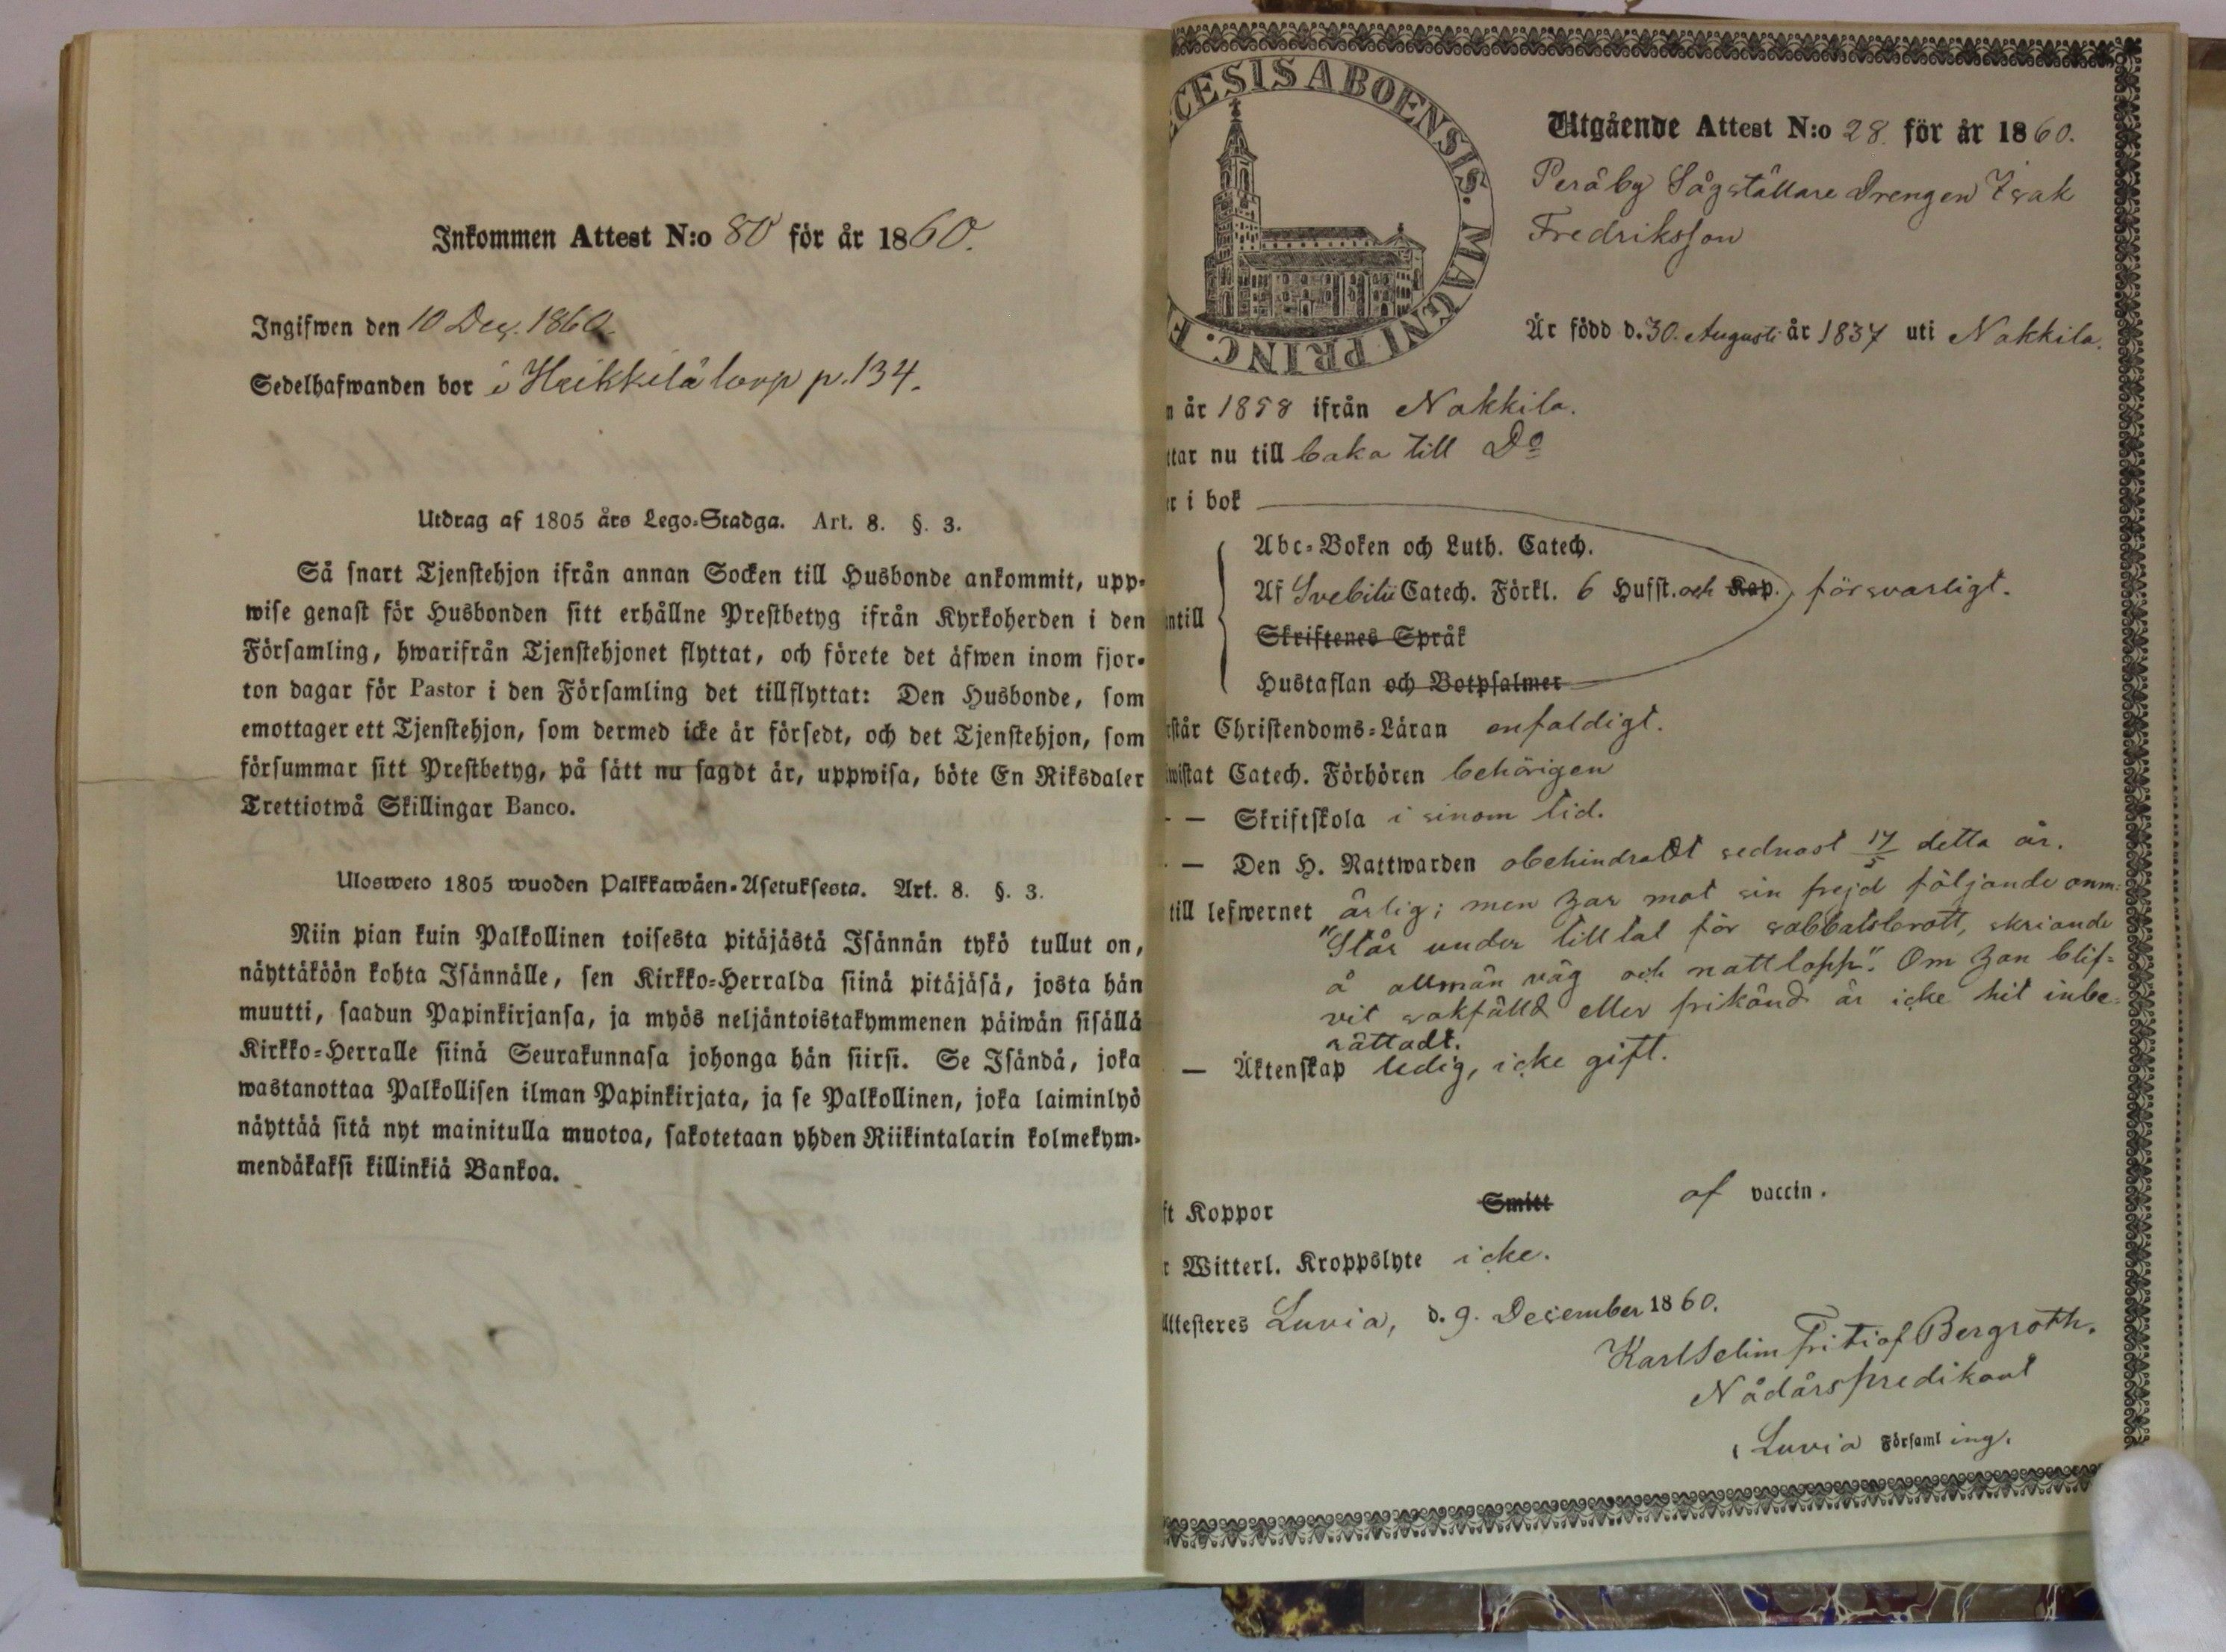 Inkommen Attest N:o 80 för år 1860.
Ingifwen den 10 Dec. 1860
Sedelhafwanden bor i Heikkilä torp p. 134.
Utdrag af 1805 års Lego-Stadga. Art. 8. §. 3.
Så snart Tjenstehjon ifrån annan Socken till Husbonde ankommit, upp-
wise genast för Husbonden sitt erhållne Prestbetyg ifrån Kyrkoherden i den
Församling, hwarifrån Tjenstehjonet flyttat, och förete det äfwen inom fjor-
ton dagar för Pastor i den Församling det tillflyttat: Den Husbonde, som
emottager ett Tjenstehjon, som dermed icke är försedt, och det Tjenstehjon, som
försummar sitt Prestbetyg, på sätt nu sagdt är, uppwisa, böte En Riksdaler
Trettiotwå Skillingar Banco.
Ulosweto 1805 wuoden Palkkawäen-Asetuksesta. Art. 8. §. 3.
Niin pian kuin Palkollinen toisesta pitäjästä Isännän tykö tullut on,
näyttäköön kohta Isännälle, sen Kirkko-Herralda siinä pitäjäsä, josta hän
muutti, saadun Papinkirjansa, ja myös neljäntoistakymmenen päiwän sisällä
Kirkko-Herralle siinä Seurakunnasa johonga hän siirsi. Se Isändä, joka
wastanottaa Palkollisen ilman Papinkirjata, ja se Palkollinen, joka laiminlyö
näyttää sitä nyt mainitulla muotoa, sakotetaan yhden Riikintalarin kolmekym-
mendäkaksi killinkiä Bankoa.
CESIS ABOENSIS. MAGNI PRINC. F
Utgående Attest N:o 28. för år 1860.
Peräby Sågställare Drengen Isak
Fredriksson
Är född d. 30. Augusti år 1837 uti Nakkila.
n år 1858 ifrån Nakkila.
ttar nu till baka till Do
r i bok
Abc-Boken och Luth. Catech.
ntill Af Svebilii Catech. Förkl. 6 Hufst. och Kap. försvarligt.
Skriftenes Språk
Hustaflan och Botpsalmer
rstår Christendoms-Läran enfaldigt.
iwistat Catech. Förhören behörigen
- — Skriftskola i sinom tid.
- — Den H. Nattwarden obehindradt sednast 17/5 detta år.
till lefwernet ärlig; men har mot sin frejd följande anm:
"Står under tilltal för sabbatsbrott, skriande
å allmän väg och nattlopp". Om han blif-
vit sakfälld eller frikänd är icke hit inbe-
rättadt.
— Äktenskap ledig, icke gift.
ft Koppor Smitt af vaccin.
r Witterl. Kroppslyte icke.
Attesteres Luvia, d. 9. December 1860.
Karl Selim Fritiof Bergroth.
Nådårspredikant
i Luvia Församling.